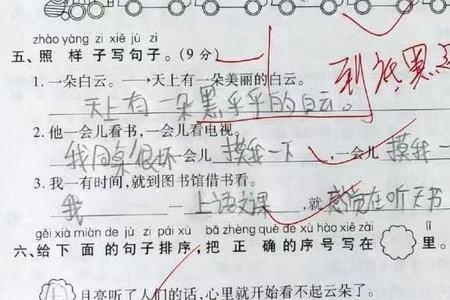 zhào yàng zi xiě jù zi
五、照 样 子写句子。(9分)
1. 一朵白云。⟶天上有一朵美丽的白云。
天上有一朵黑乎乎的白云。
到底黑还
2. 他一会儿看书,一会儿看电视。
我同桌很坏一会儿摸我一下,一会儿摸我一
3. 我一有时间,就到图书馆借书看。
我一上语文课,就感觉在听天书
gěi xià miàn de jù zi pái xù bǎ zhèng què de xù hào xiě zài lǐ
六、给 下 面 的 句子排序,把 正 确 的序号写在 里。
月亮听了人们的话,心里就开始看不起云朵了。